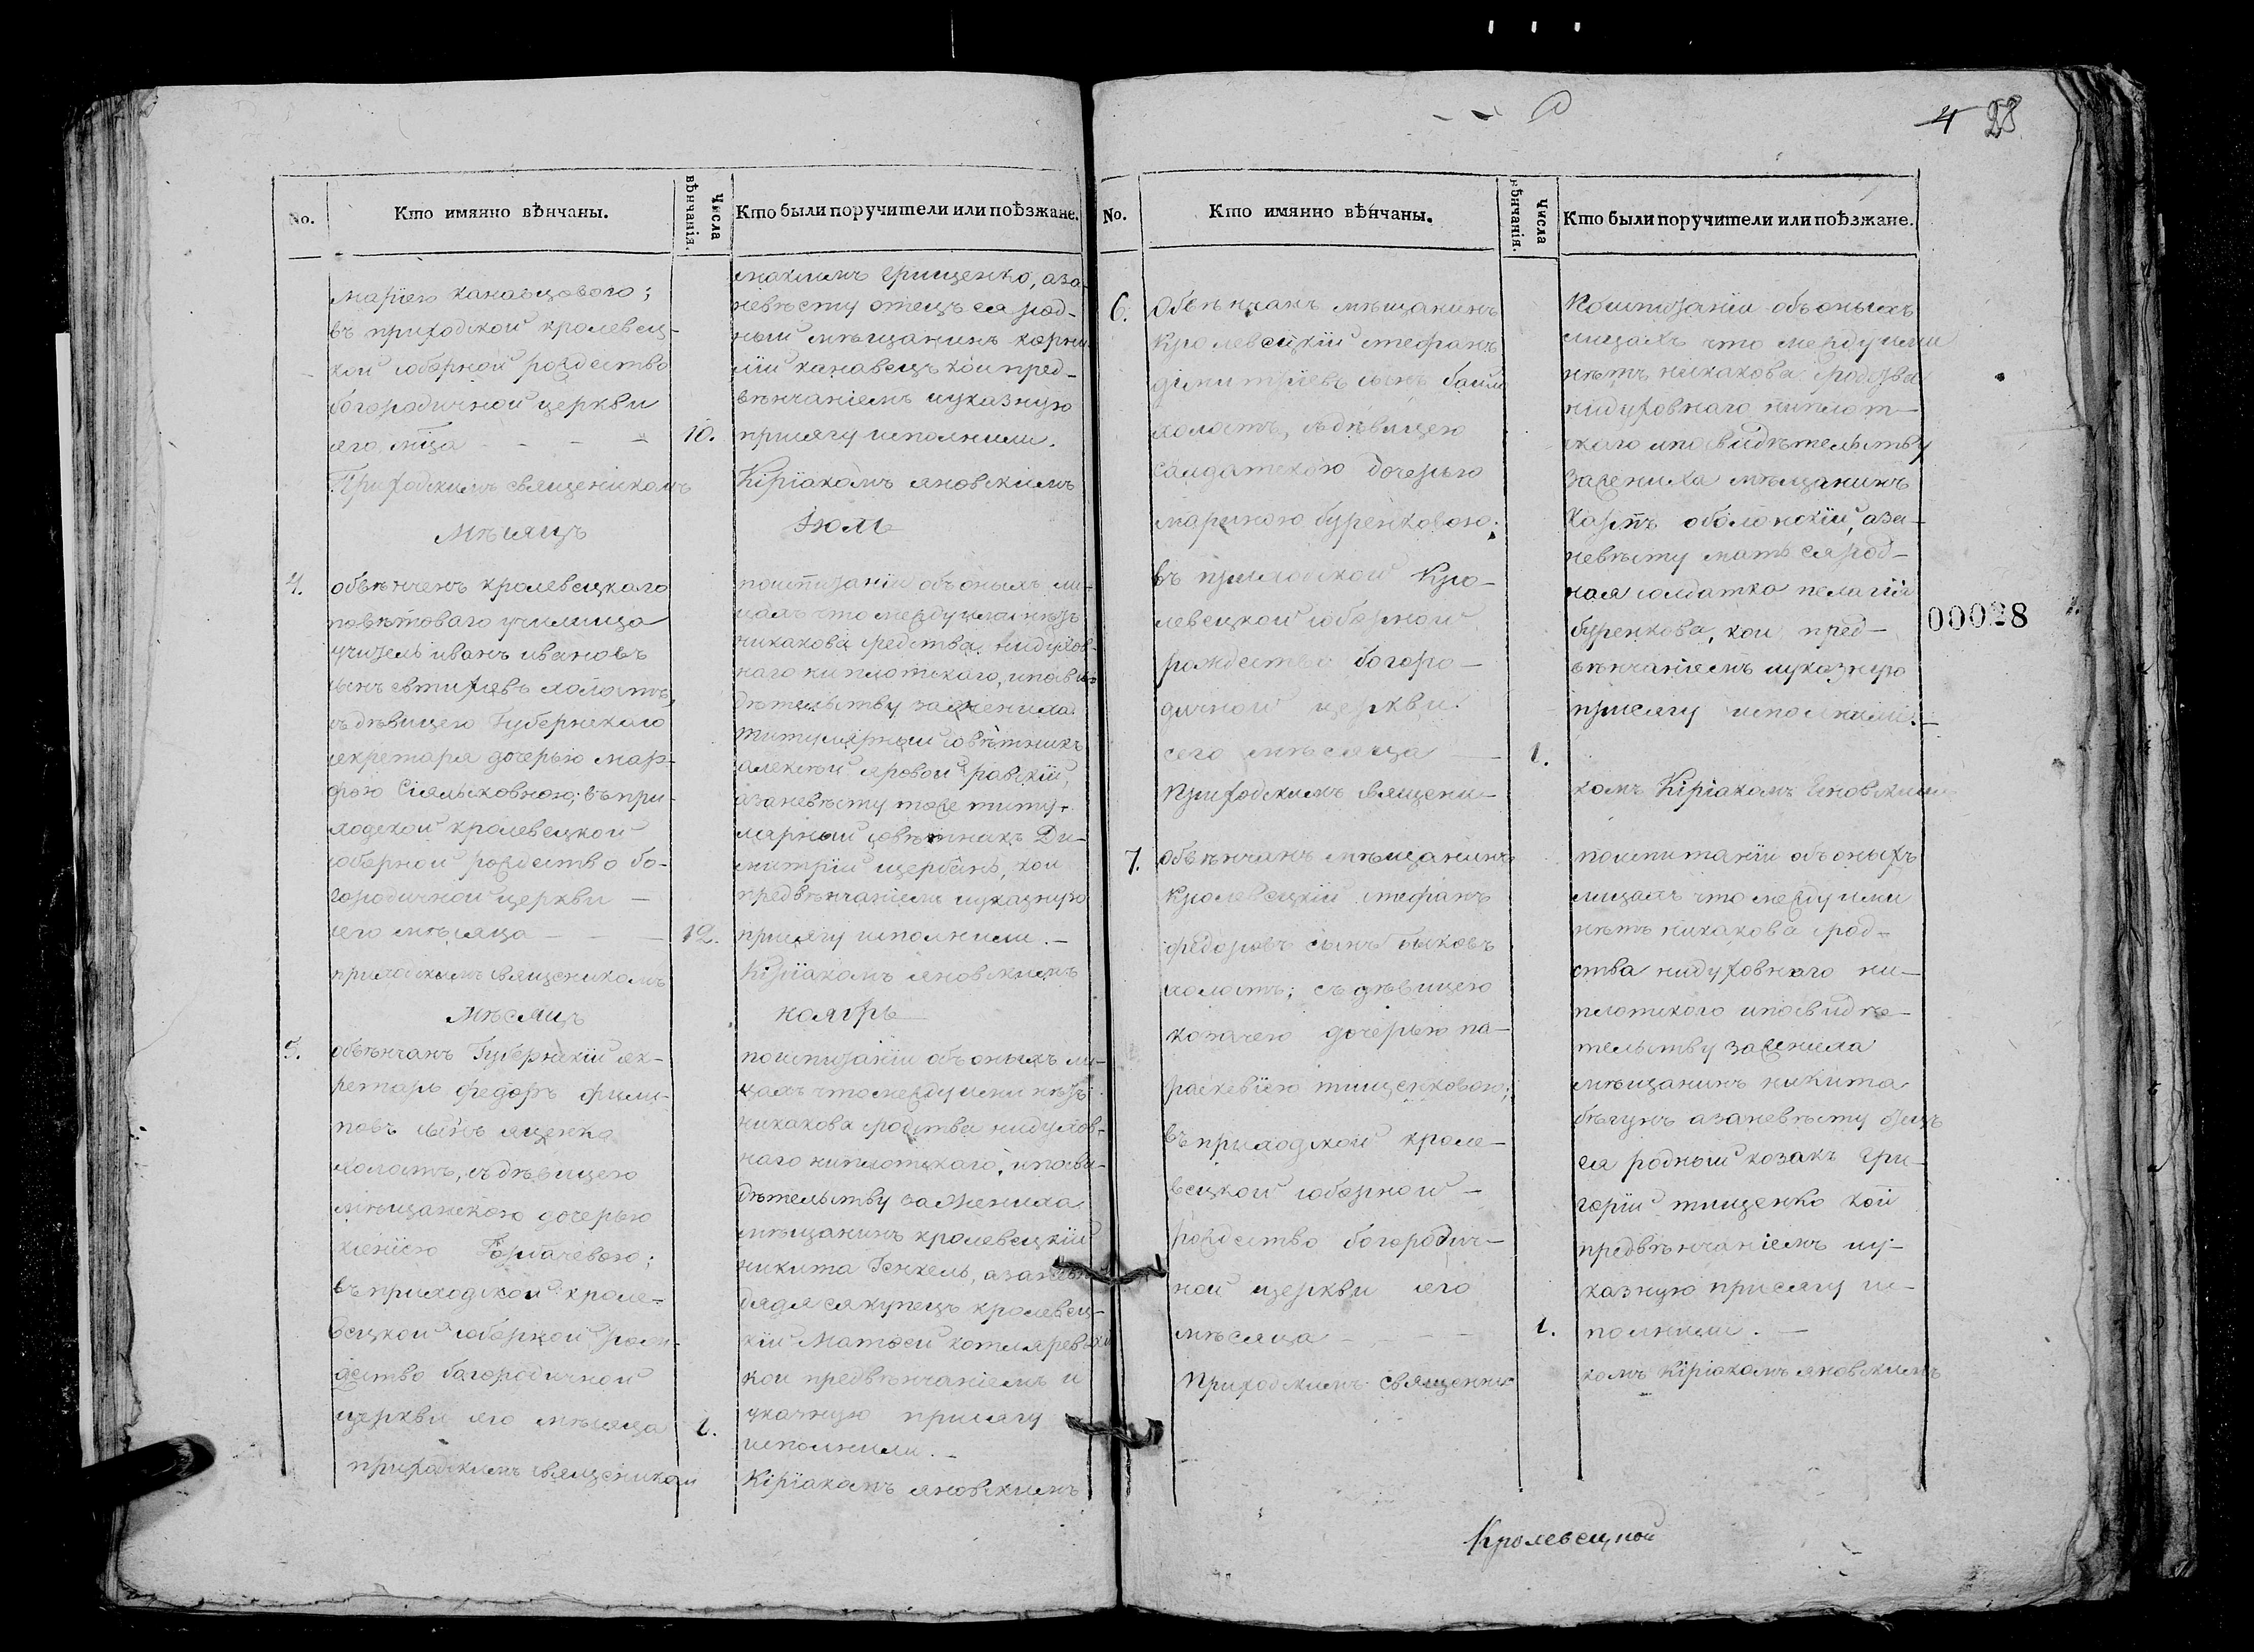 4 28
No.
Кто имянно вѣнчаны.
Числа вѣнчанія.
Кто были поручители или поѣзжане.
маріею канавцовою;
въ приходской кролевец-
кой соборной рождество
богородичной церкви
сего мца
10.
Приходскимъ священикомъ
максимъ Грищенко, аза
невѣсту отецъ ея род-
ный мѣщанинъ корни
лій канавецъ кои пред-
вѣнчаніемъ иуказную
присягу исполнили.
Кіріакомъ яновскимъ
Мѣсяцъ
Іюль
4.
обвѣнченъ кролевецкаго
повѣтоваго училища
учитель иванъ ивановъ
сынъ холостъ,
съ дѣвицею Губернскаго
секретаря дочерью мар-
фою въ при-
ходской кролевецкой
соборной рождество бо-
городичной церкви —
сего мѣсяца
12.
приходскимъ священикомъ
поисптаніи объ оныхъ ли-
цахъ что между ими нѣтъ
никакова средства нидухов-
наго ни плотскаго, и посви
дѣтельству зажениха
титулярный совѣтникъ
алексѣй
азаневѣсту тоже титу-
лярный совѣтникъ Ди-
митрій щербанъ, кои
предвѣнчаніемъ иуказную
присягу исполнили. —
Кіріакомъ яновскимъ
Мѣсяцъ
ноягрь
5.
обвѣнчанъ Губернскій сек-
ретарь федоръ фили-
повъ сынъ яценко
холостъ, съ дѣвицею
мѣщанскою дочерью
ксеніею Горбачевою;
въ приходской кроле-
вецкой соборной рож-
дество богородичной
церкви сего мѣсяца
1.
приходскимъ священиком
поисптаніи объ оныхъ ли-
цахъ что между ими нѣтъ
никакова родства нидухов-
наго ниплотскаго, и посви-
дѣтельству зажениха
мѣщанинъ кролевецкій
никита Генкель, азаневѣ
дядя ея купецъ кролевец-
кій Матвей котляревскій
кои предвѣнчаніемъ и
указную присягу
исполнили. —
Кіріакомъ яновскимъ
No.
Кто имянно вѣнчаны.
Числа вѣнчанія.
Кто были поручители или поѣзжане.
6.
Обвѣнчанъ мѣщанинъ
Кролевецкій стефанъ
димитріевъ сынъ
холостъ, съ дѣвицею
салдатскою дочерью
мариною буренковою;
въ приходской Кро-
левецкой соборной
рождество богоро-
дичной церкви.
сего мѣсяца
1.
Приходскимъ священи-
Поисптаніи объ оныхъ
лицахъ что между ими
нѣтъ никакова сродства
нидуховнаго ниплот-
скаго ипосвидѣтельству
зажениха мѣщанинъ
оболонскій, аза-
невѣсту мать ея род-
ная солдатка пелагія
буренкова, кои пред-
вѣнчаніемъ иуказную
присягу исполнили. —
комъ Кіріакомъ Яновским
00028
7.
обвѣнчанъ мѣщанинъ
Кролевецкій стефанъ
федоровъ сынъ быковъ
холостъ; съ дѣвицею
козачею дочерью па-
раскевіею тищенковою;
въ приходской кроле-
вецкой соборной —
рождество богородич-
ной церкви сего
мѣсяца
1.
Приходскимъ священник
поиспитаніи объ оныхъ
лицахъ что между ими
нѣтъ никакова срод-
ства нидуховнаго ни-
плотскаго ипосвидѣ-
тельству зажениха
мѣщанинъ никита
бѣгунъ азаневѣсту отецъ
ея родный козакъ Гри-
горій тищенко кои
предвѣнчаніемъ иу-
казную присягу ис-
полнили. —
комъ Кіріакомъ яновскимъ
Кролевецкой